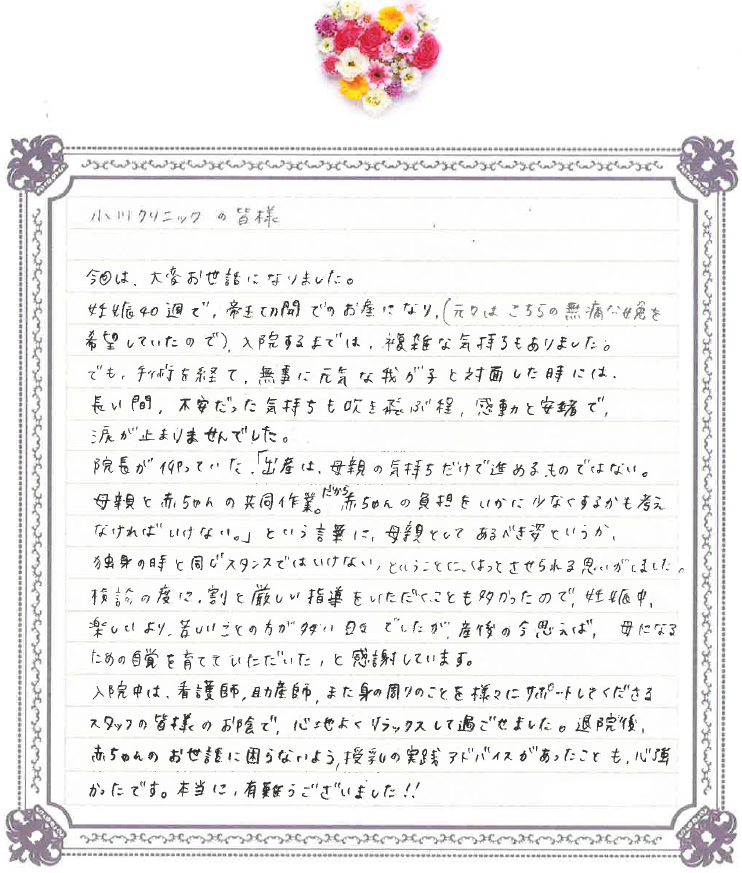 小川クリニックの皆様
今回は、大変お世話になりました。
妊娠40週で、帝王切開でのお産になり、(元々はこちらの無痛分娩を
希望していたので)、入院するまでは、複雑な気持ちもありました。
でも、手術を経て、無事に元気な我が子と対面した時には、
長い間、不安だった気持ちも吹き飛ぶ程、感動と安堵で、
涙が止まりませんでした。
院長が仰っていた、「出産は、母親の気持ちだけで進めるものではない。
母親と赤ちゃんの共同作業。だから赤ちゃんの負担をいかに少なくするかも考え
なければいけない。」という言葉に、母親としてあるべき姿というか、
独身の時と同じスタンスではいけない、ということに、はっとさせられる思いがしました。
検診の度に、割と厳しい指導をいただくことも多かったので、妊娠中、
楽しいより、苦しいことの方が多い日々でしたが、産後の今思えば、母になる
ための自覚を育てていただいた、と感謝しています。
入院中は、看護師、助産師、また身の周りのことを様々にサポートしてくださる
スタッフの皆様のお陰で、心地よくリラックスして過ごせました。退院後、
赤ちゃんのお世話に困らないよう、授乳の実践アドバイスがあったことも、心強
かったです。本当に、有難うございました!!